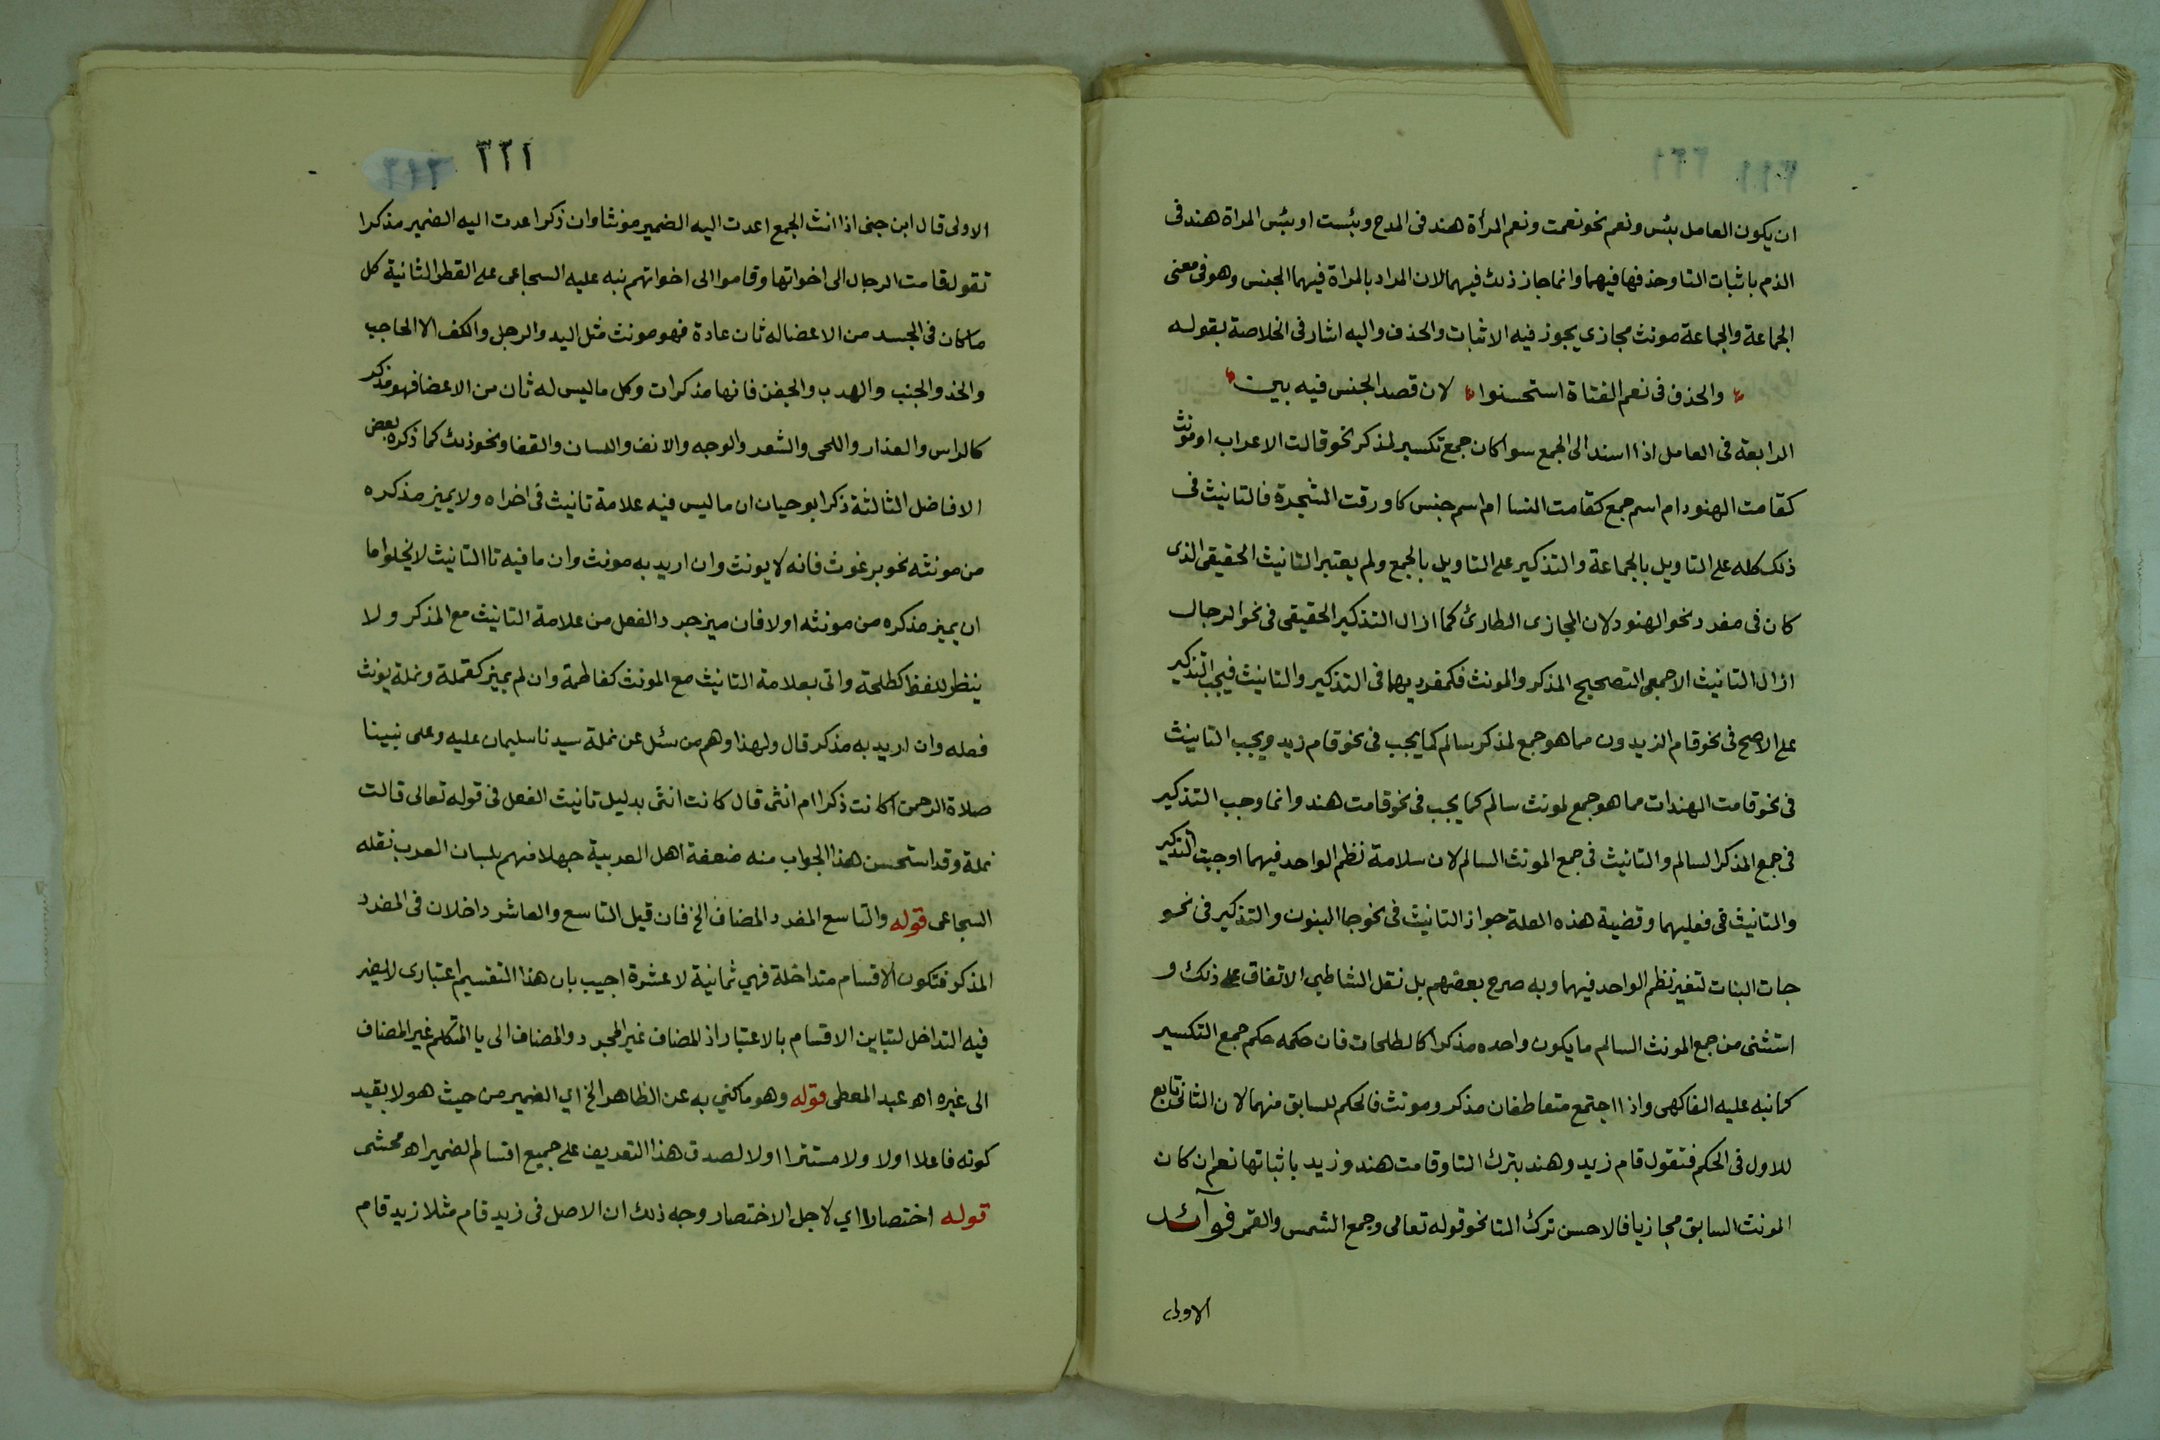 ان يكون العامل بئس ونعم نحو نعمت ونعم المرأة هند فى المدح وبئست او بئس المراة هند فى
الذم باثبات التا وحذفها فيهما وانما جاز ذلك فيهما لان المراد بالمراة فيهما الجنس وهو فى معنى
الجماعة والجماعة مونث مجازى يجوز فيه الاثبات والحذف واليه اشار فى الخلاصة بقوله
والحذف فى نعم الفتاة استحسنوا لان قصد الجنس فيه بين
الرابعة فى العامل اذا اسند الى الجمع سوا كان جمع تكسير لمذكر نحو قالت الاعراب او مونث
كقامت الهنود ام اسم جمع كقامت النسا ام اسم جنس كاورقت الشجرة فالتانيث فى
ذلك كله على التاويل بالجماعة والتذكير على التاويل بالجمع ولم يعتبر التانيث الحقيقى الذى
كان فى مفرد نحو الهنود لان المجازى الطارئ كما ازال التذكير الحقيقى فى نحو الرجال
ازال التانيث الا جمعى التصحيح المذكر والمونث فكمفرديهما فى التذكير والتانيث فيجب التذكير
على الاصح فى نحو قام الزيدون مما هو جمع لمذكر سالم كما يجب فى نحو قام زيد ويجب التانيث
فى نحو قامت الهندات مما هو جمع لمونث سالم كما يجب فى نحو قامت هند وانما وجب التذكير
فى جمع المذكر السالم والتانيث فى جمع المونث السالم لان سلامة نظم الواحد فيهما اوجبت التذكير
والتانيث فى فعليهما وقضية هذه العلة جواز التانيث فى نحو جا البنون والتذكير فى نحو
جات البنات لتغير نظم الواحد فيهما وبه صرح بعضهم بل نقل الشاطبى الاتفاق على ذلك و
استثنى من جمع المونث السالم ما يكون واحده مذكرا كالطلحات فان حكمه حكم جمع التكسير
كما نبه عليه الفاكهى واذا اجتمع متعاطفان مذكر ومونث فالحكم للسابق منهما لان الثانى تابع
للاول فى الحكم فتقول قام زيد وهند بترك التا وقامت هند وزيد باثباتها نعم ان كان
المونث السابق مجازيا فالاحسن ترك التا نحو قوله تعالى وجمع الشمس والقمر فوآئد
الاولى
٣٢١
الاولى قال ابن جنى اذا انث الجمع اعدت اليه الضمير مونثا وان ذكر اعدت اليه الضمير مذكرا
تقول قامت الرجال الى اخواتها وقاموا الى اخواتهم نبه عليه السجاعى على القطر الثانية كل
ما كان فى الجسد من الاعضا له ثان عادة فهو مونث مثل اليد والرجل والكف الا الحاجب
والخد والجنب والهدب والجفن فانها مذكرات وكل ما ليس له ثان من الاعضا فهو مذكر
كالراس والعذار واللحى والشعر والوجه والانف واللسان والقفا ونحو ذلك كما ذكره بعض
الافاضل الثالثة ذكر ابو حيان ان ما ليس فيه علامة تانيث فى اخراه ولا يميز مذكره
من مونثه نحو برغوث فانه لا يونث وان اريد به مونث وان ما فيه تا التانيث لا يخلوا ما
ان يميز مذكره من مونثه اولا فان ميز جرد الفعل من علامة التانيث مع المذكر ولا
ينظر للفظ كطلحة واتى بعلامة التانيث مع المونث كفاطمة وان لم يميز كقملة ونملة يونث
فعله وان اريد به مذكر قال ولهذا وهم من سئل عن نملة سيدنا سليمان عليه وعلى نبينا
صلاة الرحمن اكانت ذكرا ام انثى قال كانت انثى بدليل تانيث الفعل فى قوله تعالى قالت
نملة وقد استحسن هذا الجواب منه ضعفة اهل العربية جهلا منهم بلسان العرب نقله
السجاعى قوله والتاسع المفرد المضاف الخ فان قيل التاسع والعاشر داخلان فى المفرد
المذكر فتكون الاقسام متداخلة فهي ثمانية لا عشرة اجيب بان هذا التقسيم اعتبارى لا يضر
فيه التداخل لتباين الاقسام بالاعتبار اذ المضاف غير المجرد والمضاف الى يا المتكلم غير المضاف
الى غيره اهـ عبد المعطى قوله وهو ما كني به عن الظاهر الخ اي الضمير من حيث هو لا بقيد
كونه فاعلا اولا ولا مستترا اولا لصدق هذا التعريف على جميع اقسام الضمير اهـ محشى
قوله اختصارا اي لاجل الاختصار وجه ذلك ان الاصل فى زيد قام مثلا زيد قام